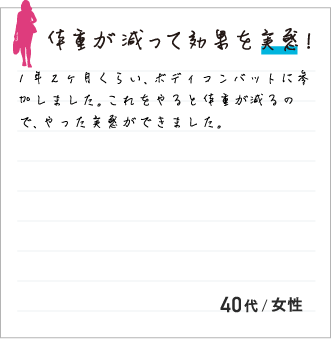 体重が減って効果を実感!
1年2ヶ月くらい、ボディコンバットに参
加しました。これをやると体重が減るの
で、やった実感ができました。
40代/女性